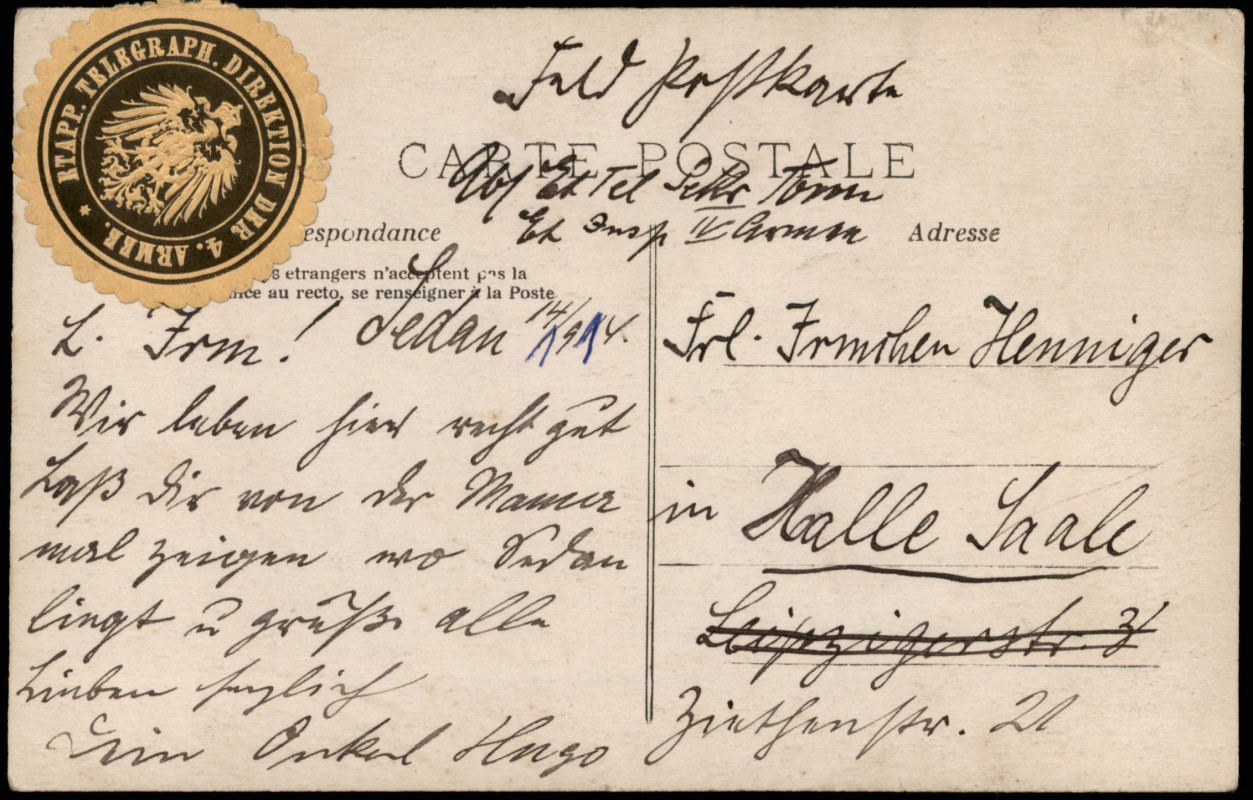 ETAPP. TELEGRAPH. DIREKTION DER 4. ARMEE. *
Feld postkarte
CARTE POSTALE
Abs Et Tel Sekr
Et Insp IV Armee
espondance
Adresse
s etrangers n'acceptent pas la
nce au recto, se renseigner à la Poste
Sedan 14/9 14.
L. Irm!
Wir leben hier recht gut
Laß dir von der Mama
mal zeigen wo Sedan
liegt u grüße alle
Lieben herzlich
Dein Onkel Hugo
Frl. Irmchen Henniger
in Halle Saale
Leipzigerstr. 3
Ziethenstr. 21